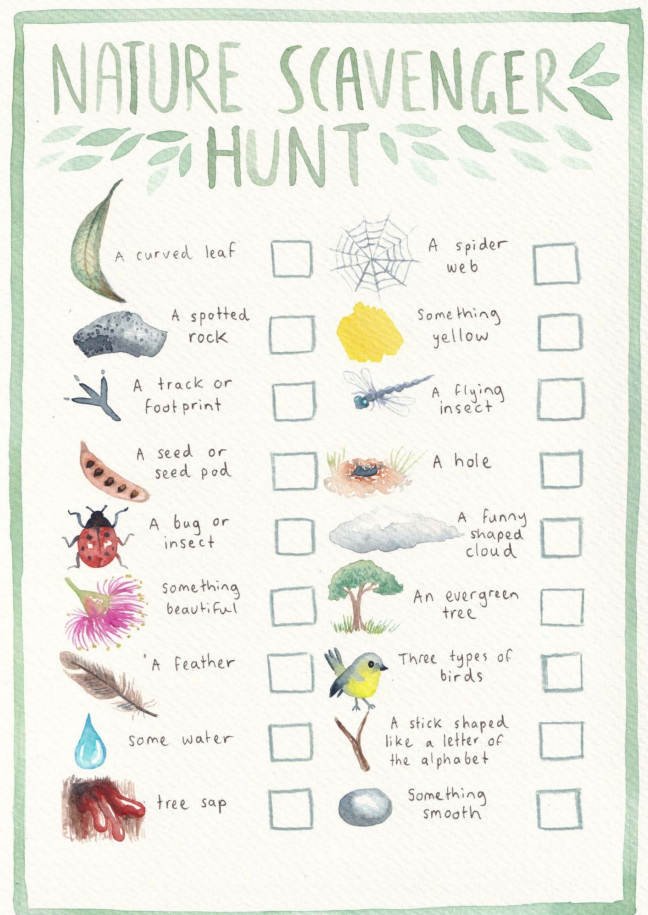 NATURE SCAVENGER
HUNT
A curved leaf
A spotted
rock
A track or
footprint
A seed or
seed pod
A bug or
insect
something
beautiful
A feather
some water
tree sap
A spider
web
Something
yellow
A flying
insect
A hole
A funny
shaped
cloud
An evergreen
tree
Three types of
birds
A stick shaped
like a letter of
the alphabet
Something
smooth